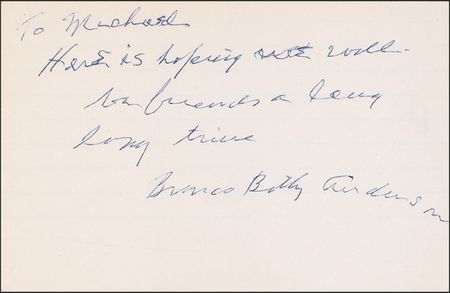 To Michael
Here is hoping we will
be friends a long
long time
Bronco Billy Anderson